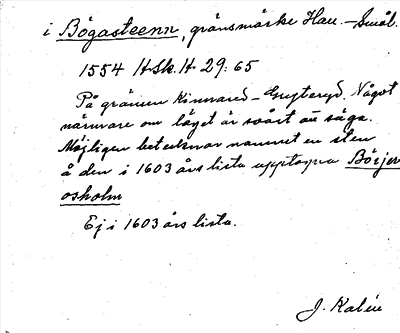 i Bögasteenn, gränsmärke Hall.-Smål.
1554 H.Sk.H 29:65
På gränsen Kinnared - Gryteryd. Något
närmare om läget är svårt att säga.
Möjligen betecknar namnet en sten
å den i 1603 års lista upptagna Börjer
osholm
Ej i 1603 års lista.
J. Kalén